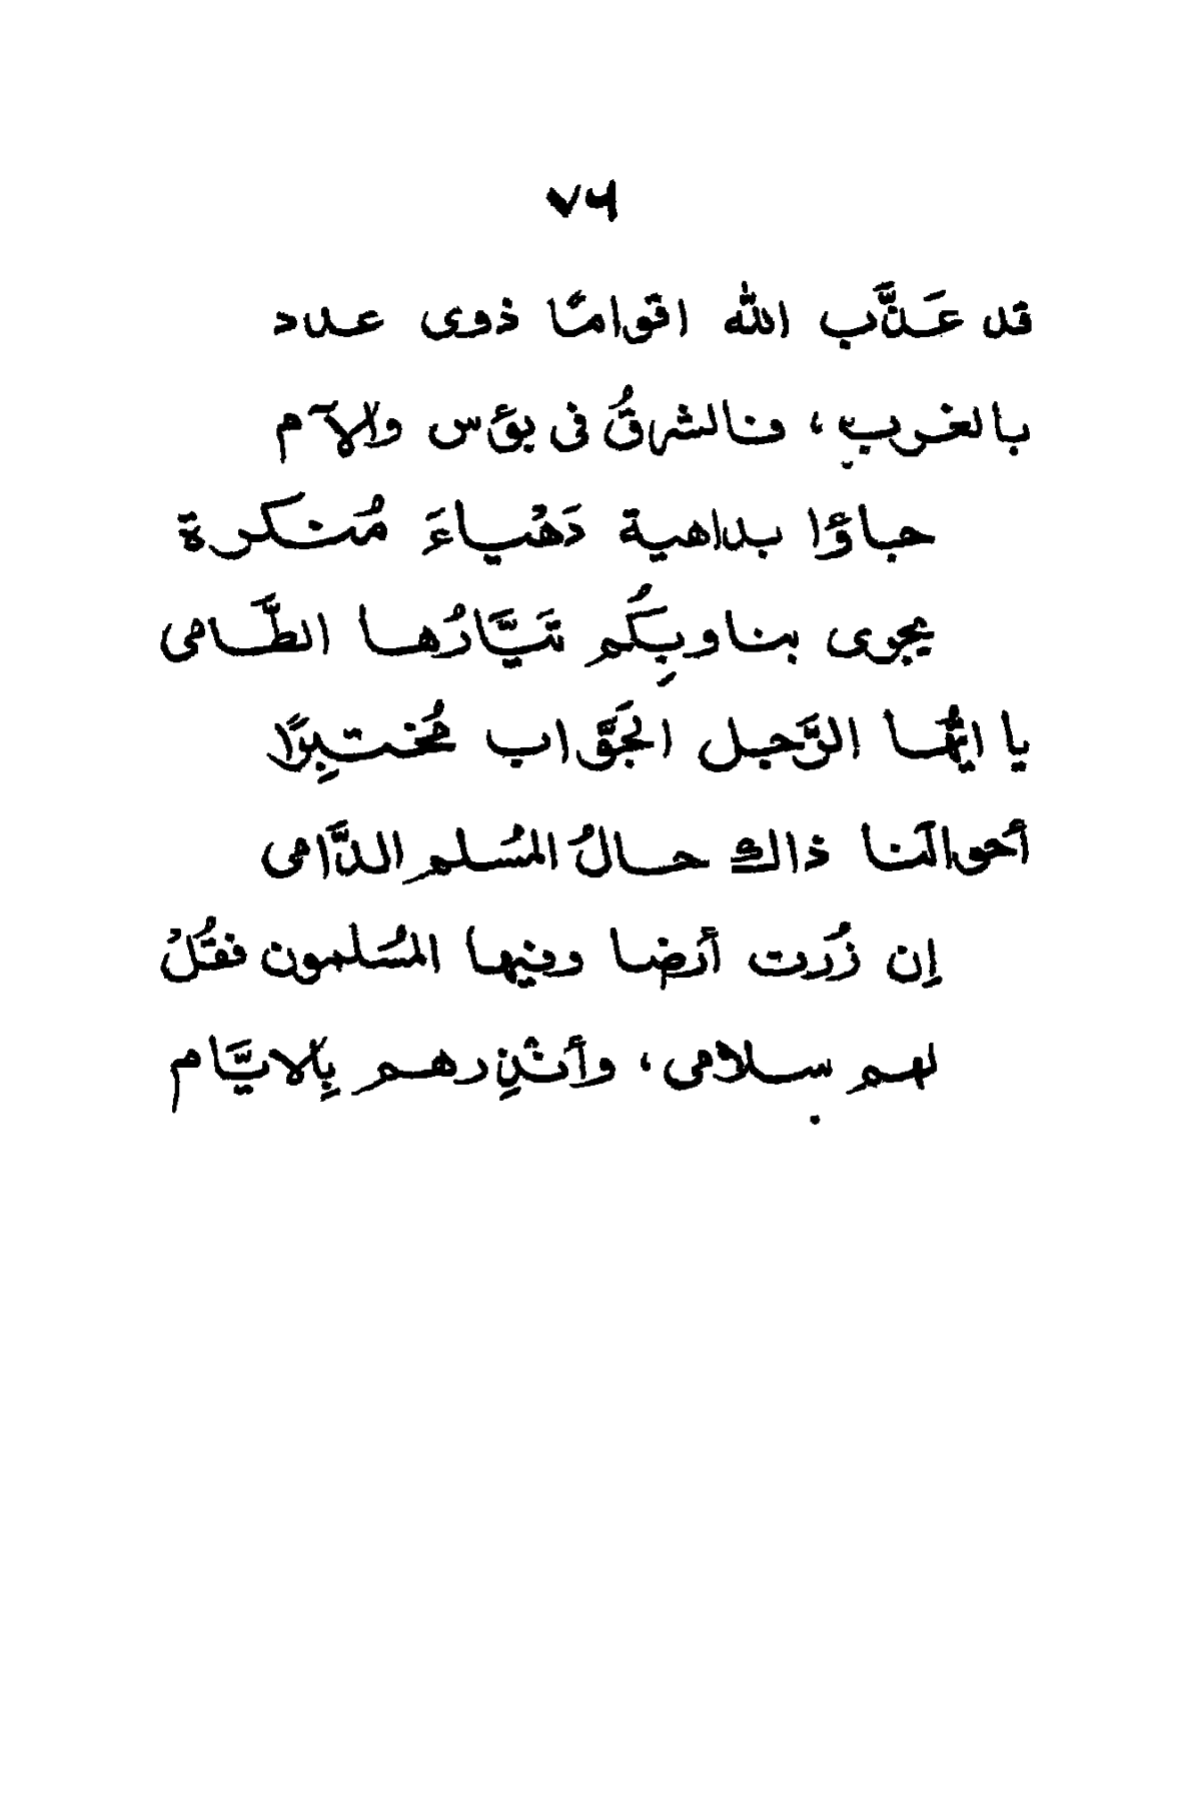 ٧٤
قد عَذَّب الله اقوامًا ذوى عدد
بالغرب ، فالشرقُ فى بؤس والآم
جاؤا بداهية دَهْياءَ مُنكرة
يجرى بنا وبِكُم تَيَّارُها الطَّامى
يا ايُّها الرَّجل الجَوَّاب مُختبِرًا
أحوالَنا ذاك حالُ المُسلم الدَّامى
إن زُرت أرضا وفيها المُسلمون فقُلْ
لهم سلامى ، وأنذِرهم بِالايَّام